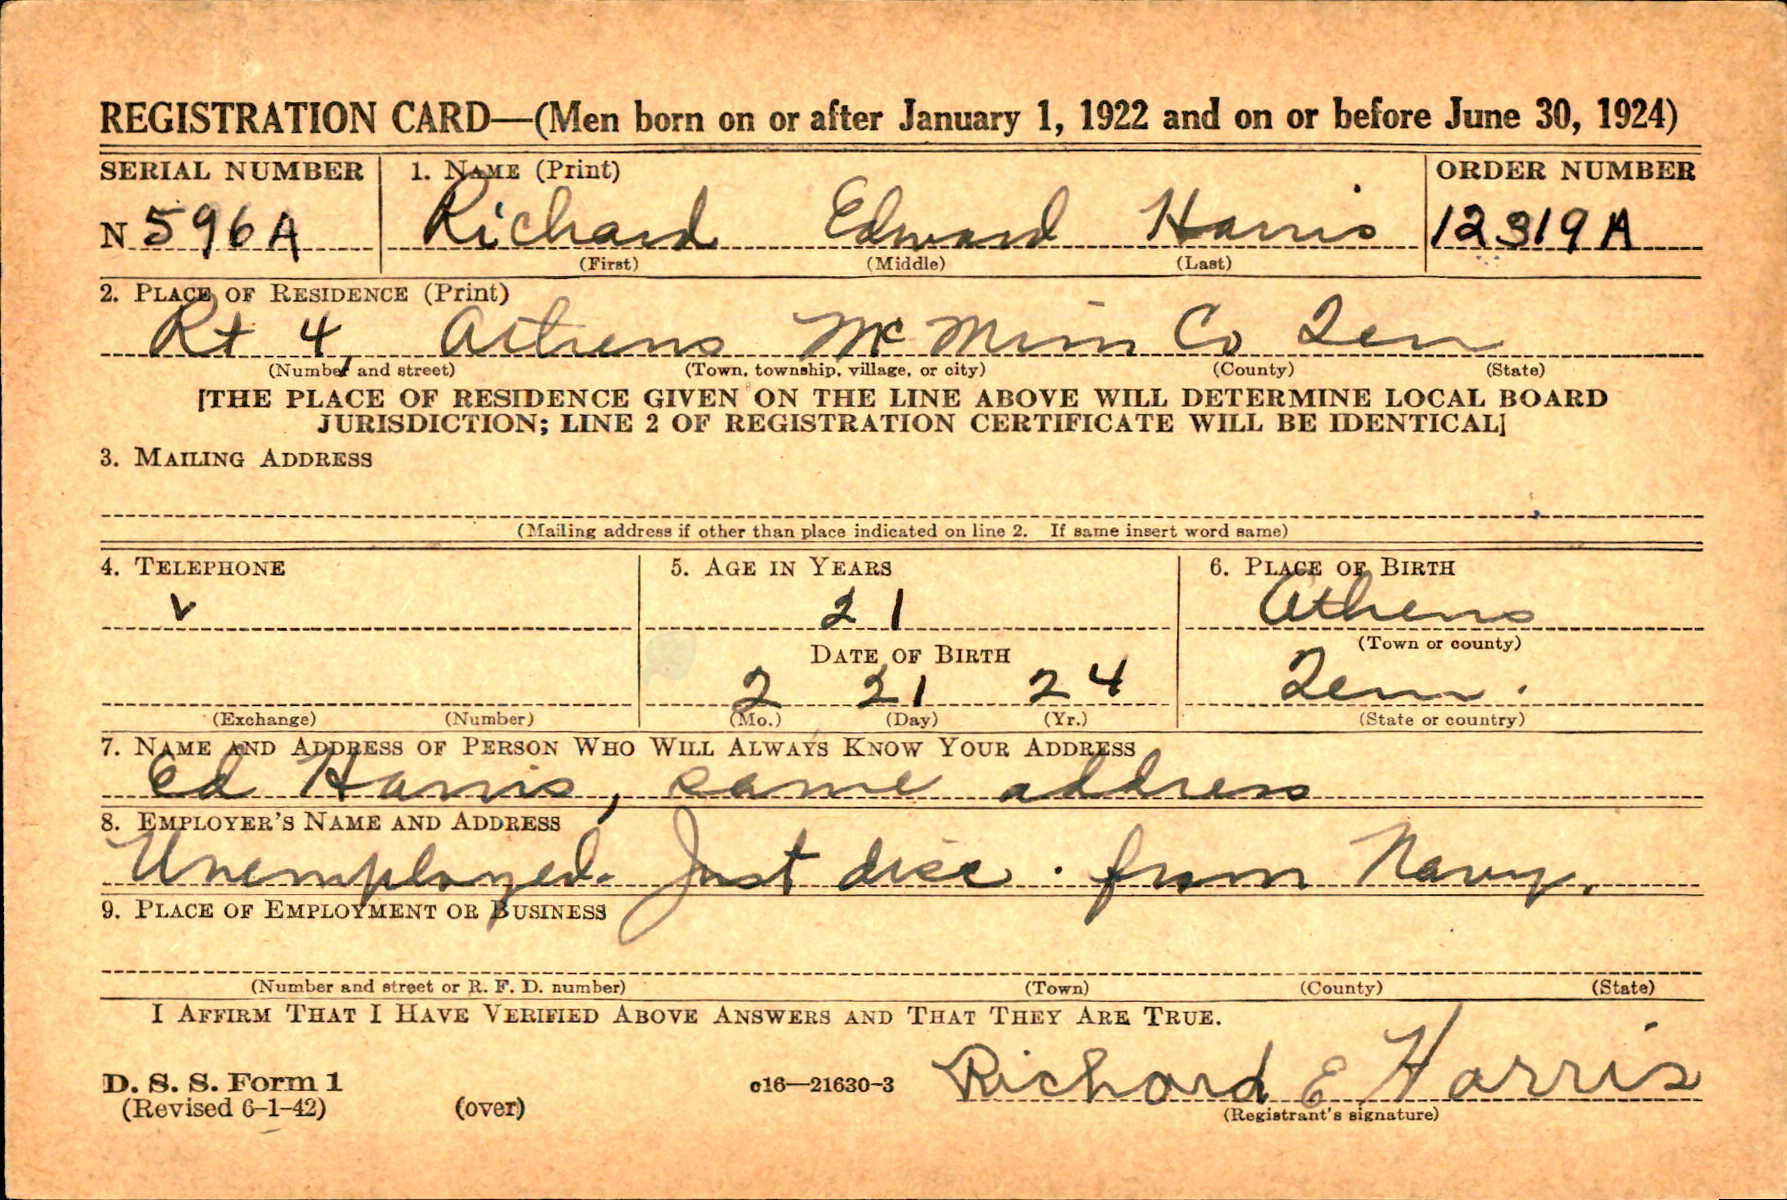 REGISTRATION CARD—(Men born on or after January 1, 1922 and on or before June 30, 1924)
SERIAL NUMBER 1. NAME (Print) ORDER NUMBER
N 596A Richard Edward Harris 12319A
(First) (Middle) (Last)
2. PLACE OF RESIDENCE (Print)
Rt 4, Athens McMinn Co Ten
(Number and street) (Town, township, village, or city) (County) (State)
[THE PLACE OF RESIDENCE GIVEN ON THE LINE ABOVE WILL DETERMINE LOCAL BOARD
JURISDICTION; LINE 2 OF REGISTRATION CERTIFICATE WILL BE IDENTICAL]
3. MAILING ADDRESS
(Mailing address if other than place indicated on line 2. If same insert word same)
4. TELEPHONE 5. AGE IN YEARS 6. PLACE OF BIRTH
21 Athens
(Town or county)
DATE OF BIRTH
2 21 24 Tenn.
(Exchange) (Number) (Mo.) (Day) (Yr.) (State or country)
7. NAME AND ADDRESS OF PERSON WHO WILL ALWAYS KNOW YOUR ADDRESS
Ed Harris, same address
8. EMPLOYER'S NAME AND ADDRESS
Unemployed. Just disc. from Navy.
9. PLACE OF EMPLOYMENT OR BUSINESS
(Number and street or R. F. D. number) (Town) (County) (State)
I AFFIRM THAT I HAVE VERIFIED ABOVE ANSWERS AND THAT THEY ARE TRUE.
D. S. S. Form 1 c16—21630-3 Richard E Harris
(Revised 6-1-42) (over) (Registrant's signature)